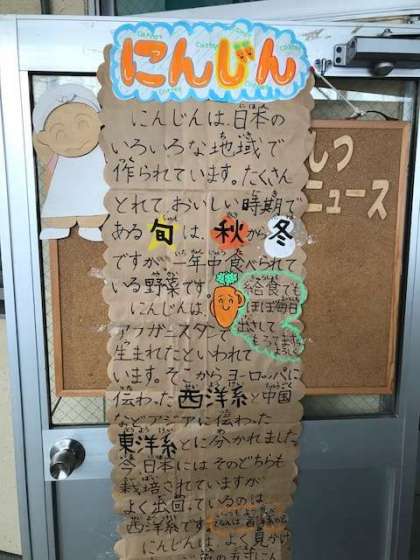 にんじん
にんじんは、日本の
いろいろな地域で
作られています。たくさん
とれて、おいしい時期で
ある旬は、秋から冬
ですが、一年中食べられて
いる野菜です。
給食でも
ほぼ毎日
にんじんは、
アフガニスタンで
生まれたといわれて
います。そこからヨーロッパに
伝わった西洋系と中国
などアジアに伝わった
東洋系とに分かれました。
今、日本にはそのどちらも
栽培されていますが
よく出回っているのは
西洋系です。
にんじんは、よく見かけ
しつ
ニュース